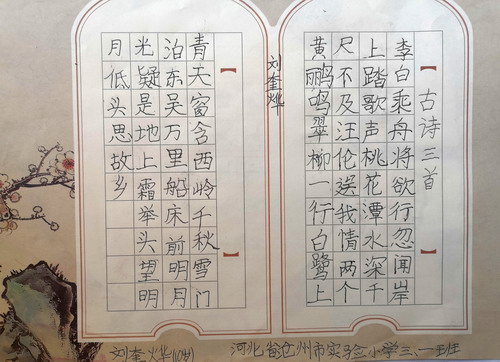 古诗三首
李白乘舟将欲行忽闻岸
上踏歌声桃花潭水深千
尺不及汪伦送我情两个
黄鹂鸣翠柳一行白鹭上
刘奎烨
青天窗含西岭千秋雪门
泊东吴万里船床前明月
光疑是地上霜举头望明
月低头思故乡
刘奎烨(10岁)
河北省沧州市实验小学三、一班